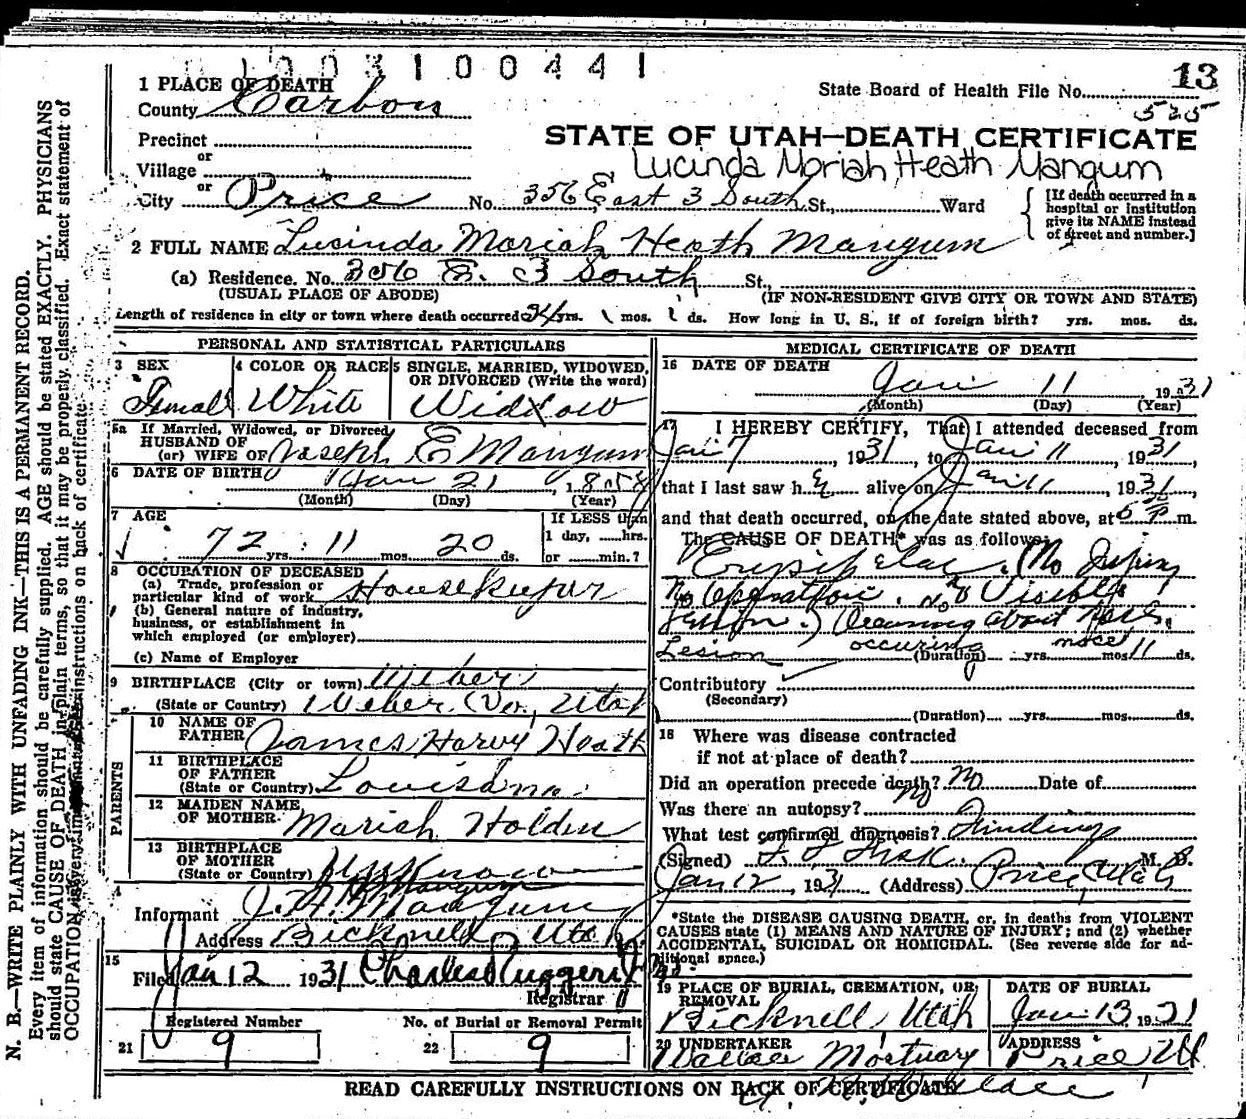 1003100441
13
State Board of Health File No.
525
1 PLACE OF DEATH
County Carbon
STATE OF UTAH—DEATH CERTIFICATE
Precinct
or
Lucinda Moriah Heath Mangum
Village
or
City Price No. 356 East 3 South St., Ward
[If death occurred in a hospital or institution give its NAME instead of street and number.]
2 FULL NAME Lucinda Moriah Heath Mangum
(a) Residence. No. 356 E. 3 South St.,
(USUAL PLACE OF ABODE) (IF NON-RESIDENT GIVE CITY OR TOWN AND STATE)
Length of residence in city or town where death occurred yrs. mos. ds. How long in U. S., if of foreign birth? yrs. mos. ds.
PERSONAL AND STATISTICAL PARTICULARS
3 SEX 4 COLOR OR RACE 5 SINGLE, MARRIED, WIDOWED, OR DIVORCED (Write the word)
Female White Widow
5a If Married, Widowed, or Divorced
HUSBAND OF
(or) WIFE OF Joseph E Mangum
6 DATE OF BIRTH Jan 21, 1858
(Month) (Day) (Year)
7 AGE If LESS than
1 day, hrs.
72 yrs. 11 mos. 20 ds. or min.?
8 OCCUPATION OF DECEASED
(a) Trade, profession or
particular kind of work Housekeeper
(b) General nature of industry,
business, or establishment in
which employed (or employer)
(c) Name of Employer
9 BIRTHPLACE (City or town) Weber
(State or Country) Weber Co., Utah
PARENTS
10 NAME OF
FATHER James Harvy Heath
11 BIRTHPLACE
OF FATHER
(State or Country) Louisana
12 MAIDEN NAME
OF MOTHER Moriah Holden
13 BIRTHPLACE
OF MOTHER
(State or Country) Unknown
14 Mangum
Informant J. H. Mangum
Address Bicknell, Utah
15
Filed Jan 12 1931 Charles Ruggeri Jr
Registrar
Registered Number No. of Burial or Removal Permit
21 9 22 9
MEDICAL CERTIFICATE OF DEATH
16 DATE OF DEATH
Jan 11 1931
(Month) (Day) (Year)
17 I HEREBY CERTIFY, That I attended deceased from
Jan 7, 1931, to Jan 11 1931,
that I last saw her alive on Jan 11, 1931,
and that death occurred, on the date stated above, at 5 P m.
The CAUSE OF DEATH* was as follows:
Erysipelas. (No Injury
No Operation. No Visible
Lesion.)
Lesion occuring
(Duration) yrs. mos. 11 ds.
Contributory
(Secondary)
(Duration) yrs. mos. ds.
18 Where was disease contracted
if not at place of death?
Did an operation precede death? No Date of
Was there an autopsy? No
What test confirmed diagnosis? Findings
(Signed) F. F. Fisk M. D.
Jan 12, 1931 (Address) Price, Utah
*State the DISEASE CAUSING DEATH, or, in deaths from VIOLENT
CAUSES state (1) MEANS AND NATURE OF INJURY; and (2) whether
ACCIDENTAL, SUICIDAL OR HOMICIDAL. (See reverse side for ad-
ditional space.)
19 PLACE OF BURIAL, CREMATION, OR REMOVAL DATE OF BURIAL
Bicknell, Utah Jan 13 1931
20 UNDERTAKER ADDRESS
Wallace Mortuary Price Ut
READ CAREFULLY INSTRUCTIONS ON BACK OF CERTIFICATE
Wallace
N. B.—WRITE PLAINLY WITH UNFADING INK—THIS IS A PERMANENT RECORD.
Every item of information should be carefully supplied. AGE should be stated EXACTLY. PHYSICIANS
should state CAUSE OF DEATH in plain terms, so that it may be properly classified. Exact statement of
OCCUPATION is very instructions on back of certificate.